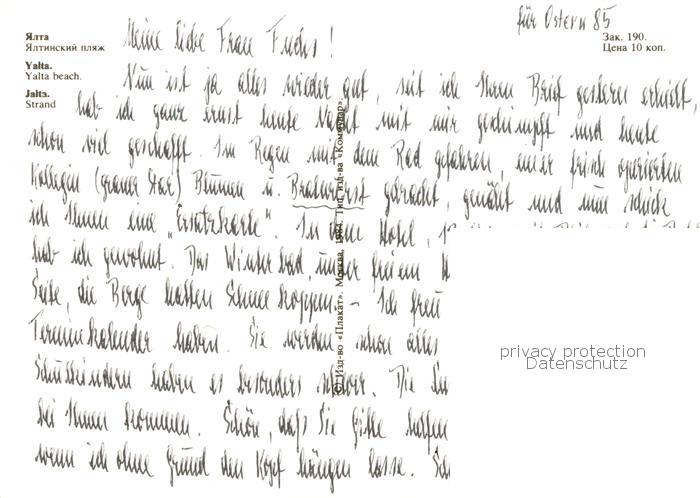 für Ostern 85
Ялта
Ялтинский пляж
Yalta.
Yalta beach.
Jalta.
Strand
Зак. 190.
Цена 10 коп.
Meine liebe Frau Fuchs!
Nun ist ja alles wieder gut, seit ich Ihren Brief gestern erhielt,
hab ich ganz ernst heute Nacht mit mir geschimpft und heute
schon viel geschafft. Im Regen mit dem Rad gefahren, einer frisch operierten
Kollegin (grauer Star) Blumen u. Bratwurst gebracht, genäht und nun schicke
ich Ihnen eine "Ersatzkarte". In dem Hotel,
hab ich gewohnt. Das Winterbad, unter freiem
Seite, die Berge hatten Schneekoppen. – Ich freu
Terminkalender haben. Sie werden schon alles
Schulkindern haben es besonders schwer. Die
bei Ihnen kommen. Schön, daß Sie halfen
wenn ich ohne Grund den Kopf hängen lasse.
© Изд-во «Плакат». Москва, 1984. Тип. изд-ва «Коммунар».
privacy protection
Datenschutz